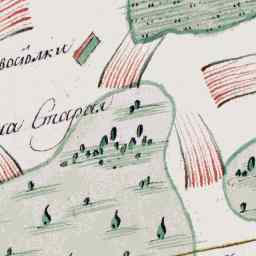 восѣлки
на Старая